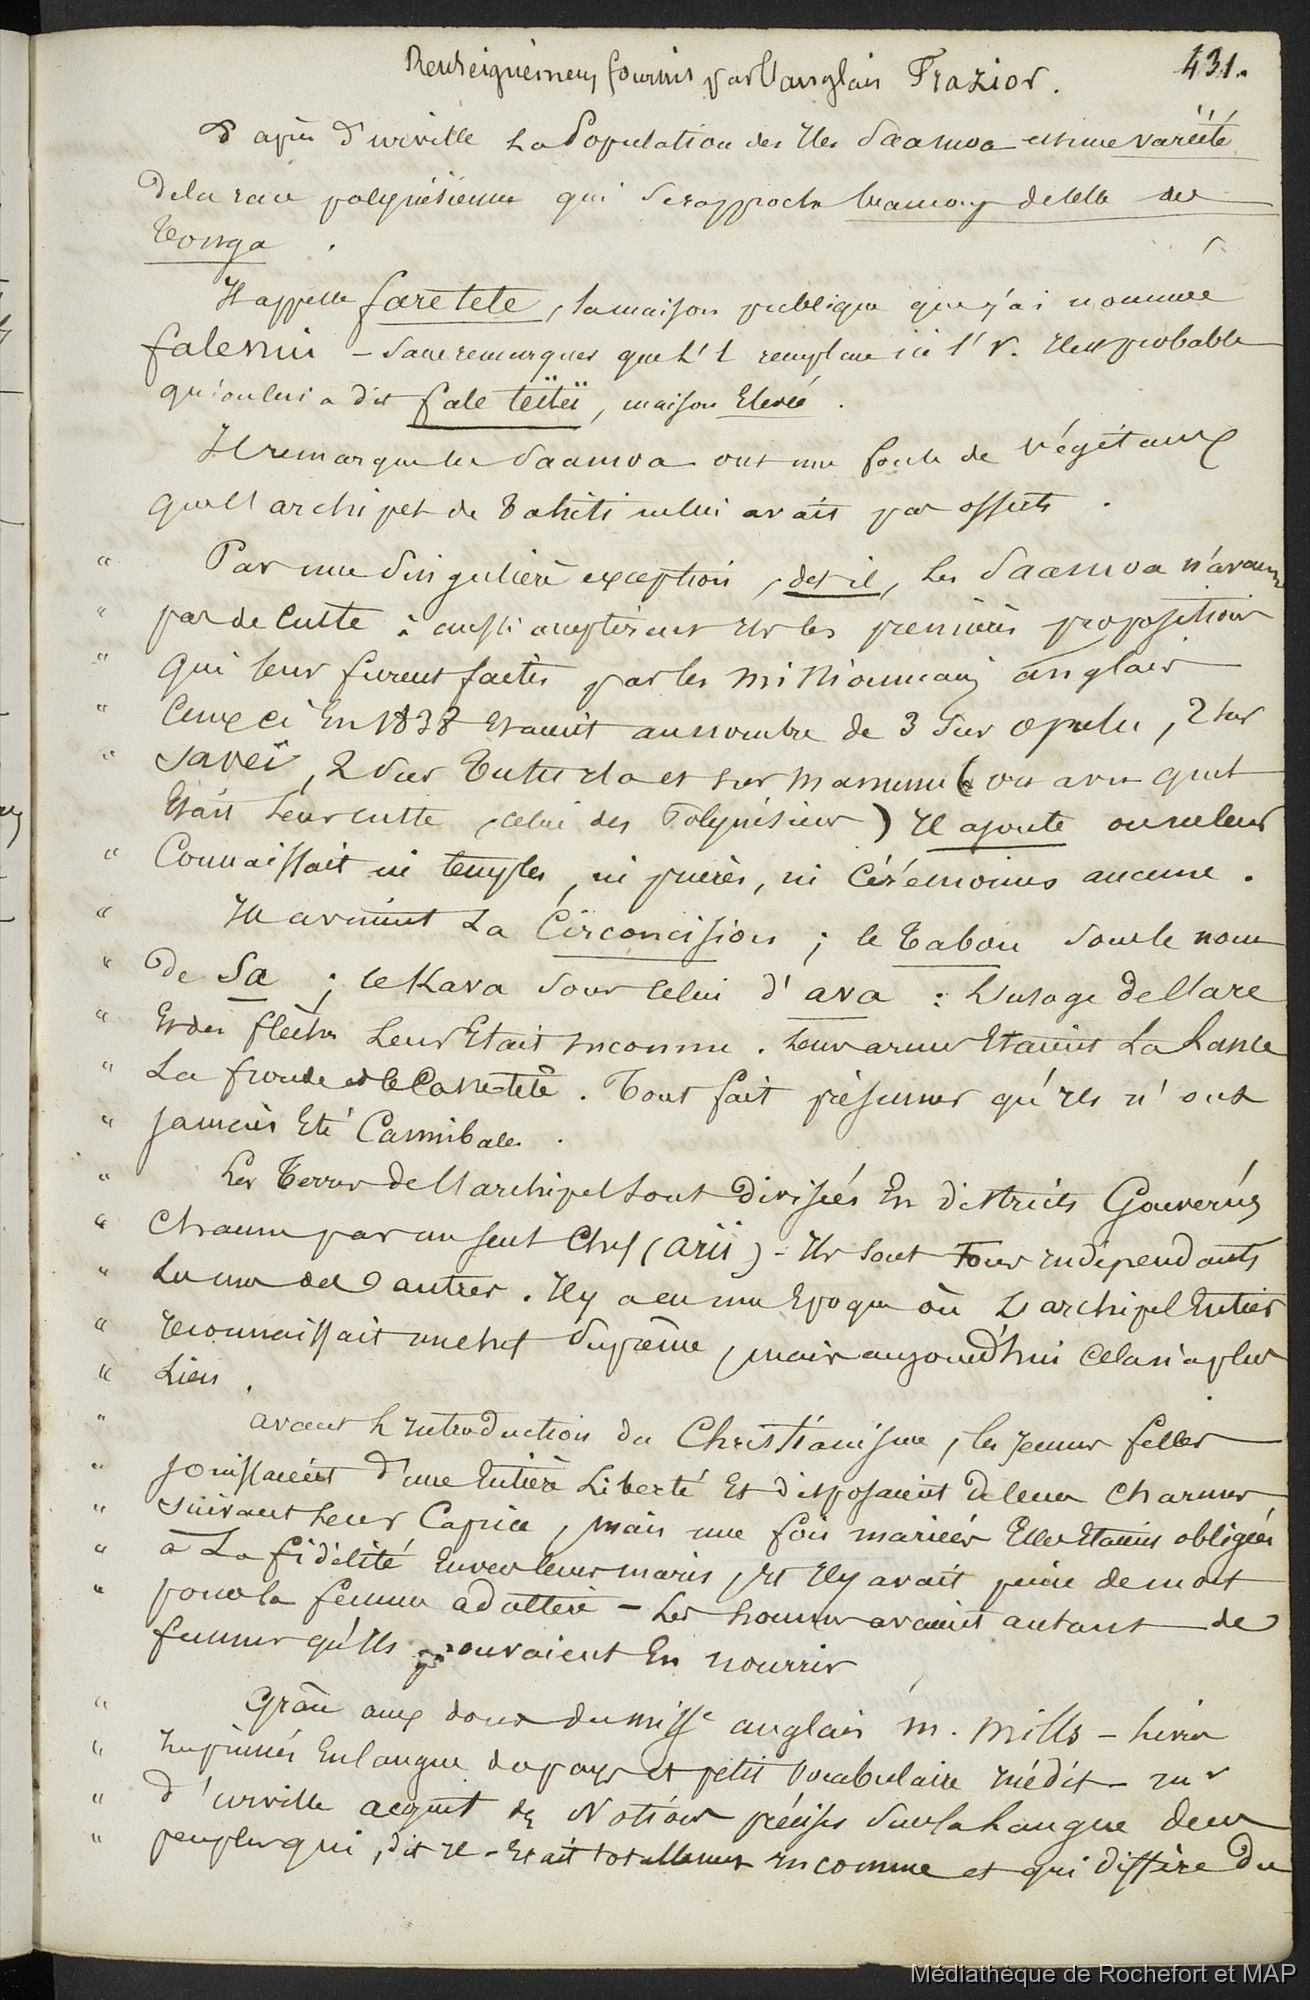 Renseignemens fournis par l'anglais Frazior.
431.
D'après D'urville La Population des Iles Saamoa est une variété
De la race polynésienne qui se rapproche beaucoup de celle des
Tonga.
Il appelle faretete, la maison publique que j'ai nommée
falenui – sans remarquer que L'l remplace ici l'r. Il est probable
qu'on lui a dit fale teïteï, maison Elevée.
Il remarque les Saamoa ont une foule de végétaux
que l'archipel de Tahiti ne lui avait pas offerts.
" Par une singulière exception, dit-il, les Saamoa n'avaient
" pas de culte : aussi acceptèrent ils les premières propositions
" qui leur furent faites par les missionnaires anglais
" Ceux ci En 1838 Etaient au nombre de 3 sur opulu, 2 sur
" Saveï, 2 sur Tutuila et sur Manunu (on a vu quel
Etait leur culte, celui des Polynésiens) Il ajoute on ne leur
" Connaissait ni temples, ni prières, ni Cérémonies aucune.
" Ils avaient La Circoncision ; le Tabou sous le nom
" De Sa ; le Kava sous celui d'ava : L'usage de l'arc
" Et des flèches Leur Etait inconnu. Leurs armes Etaient La Lance
" La fronde et le Casse-tête. Tout fait présumer qu'ils n'ont
" Jamais Eté Cannibales.
" Les Terres de l'archipel sont Divisées En districts Gouvernés
" Chacun par un seul Chef (arii) - Ils sont Tous indépendants
" Les uns des autres. Il y a eu une Epoque où L'archipel Entier
" reconnaissait un chef Suprême, mais aujourd'hui cela n'a plus
" Lieu.
" avant L'introduction du Christianisme, les jeunes filles
" jouissaient d'une Entière Liberté Et disposaient de leurs charmes
" suivant Leur Caprice, mais une fois mariées Elles Etaient obligées
" à La fidélité Envers leurs maris, et Il y avait peine de mort
" pour la femme adultère – Les hommes avaient autant de
femmes qu'Ils pouvaient En nourrir
" Grâce aux dons du missre anglais M. Mills – livres
" Imprimés En langue du pays et petit Vocabulaire inédit – Mr
" D'urville acquit de Notions précises sur la Langue de ces
" peuples qui, dit Il - Etait totalement inconnue et qui diffère du
Médiathèque de Rochefort et MAP